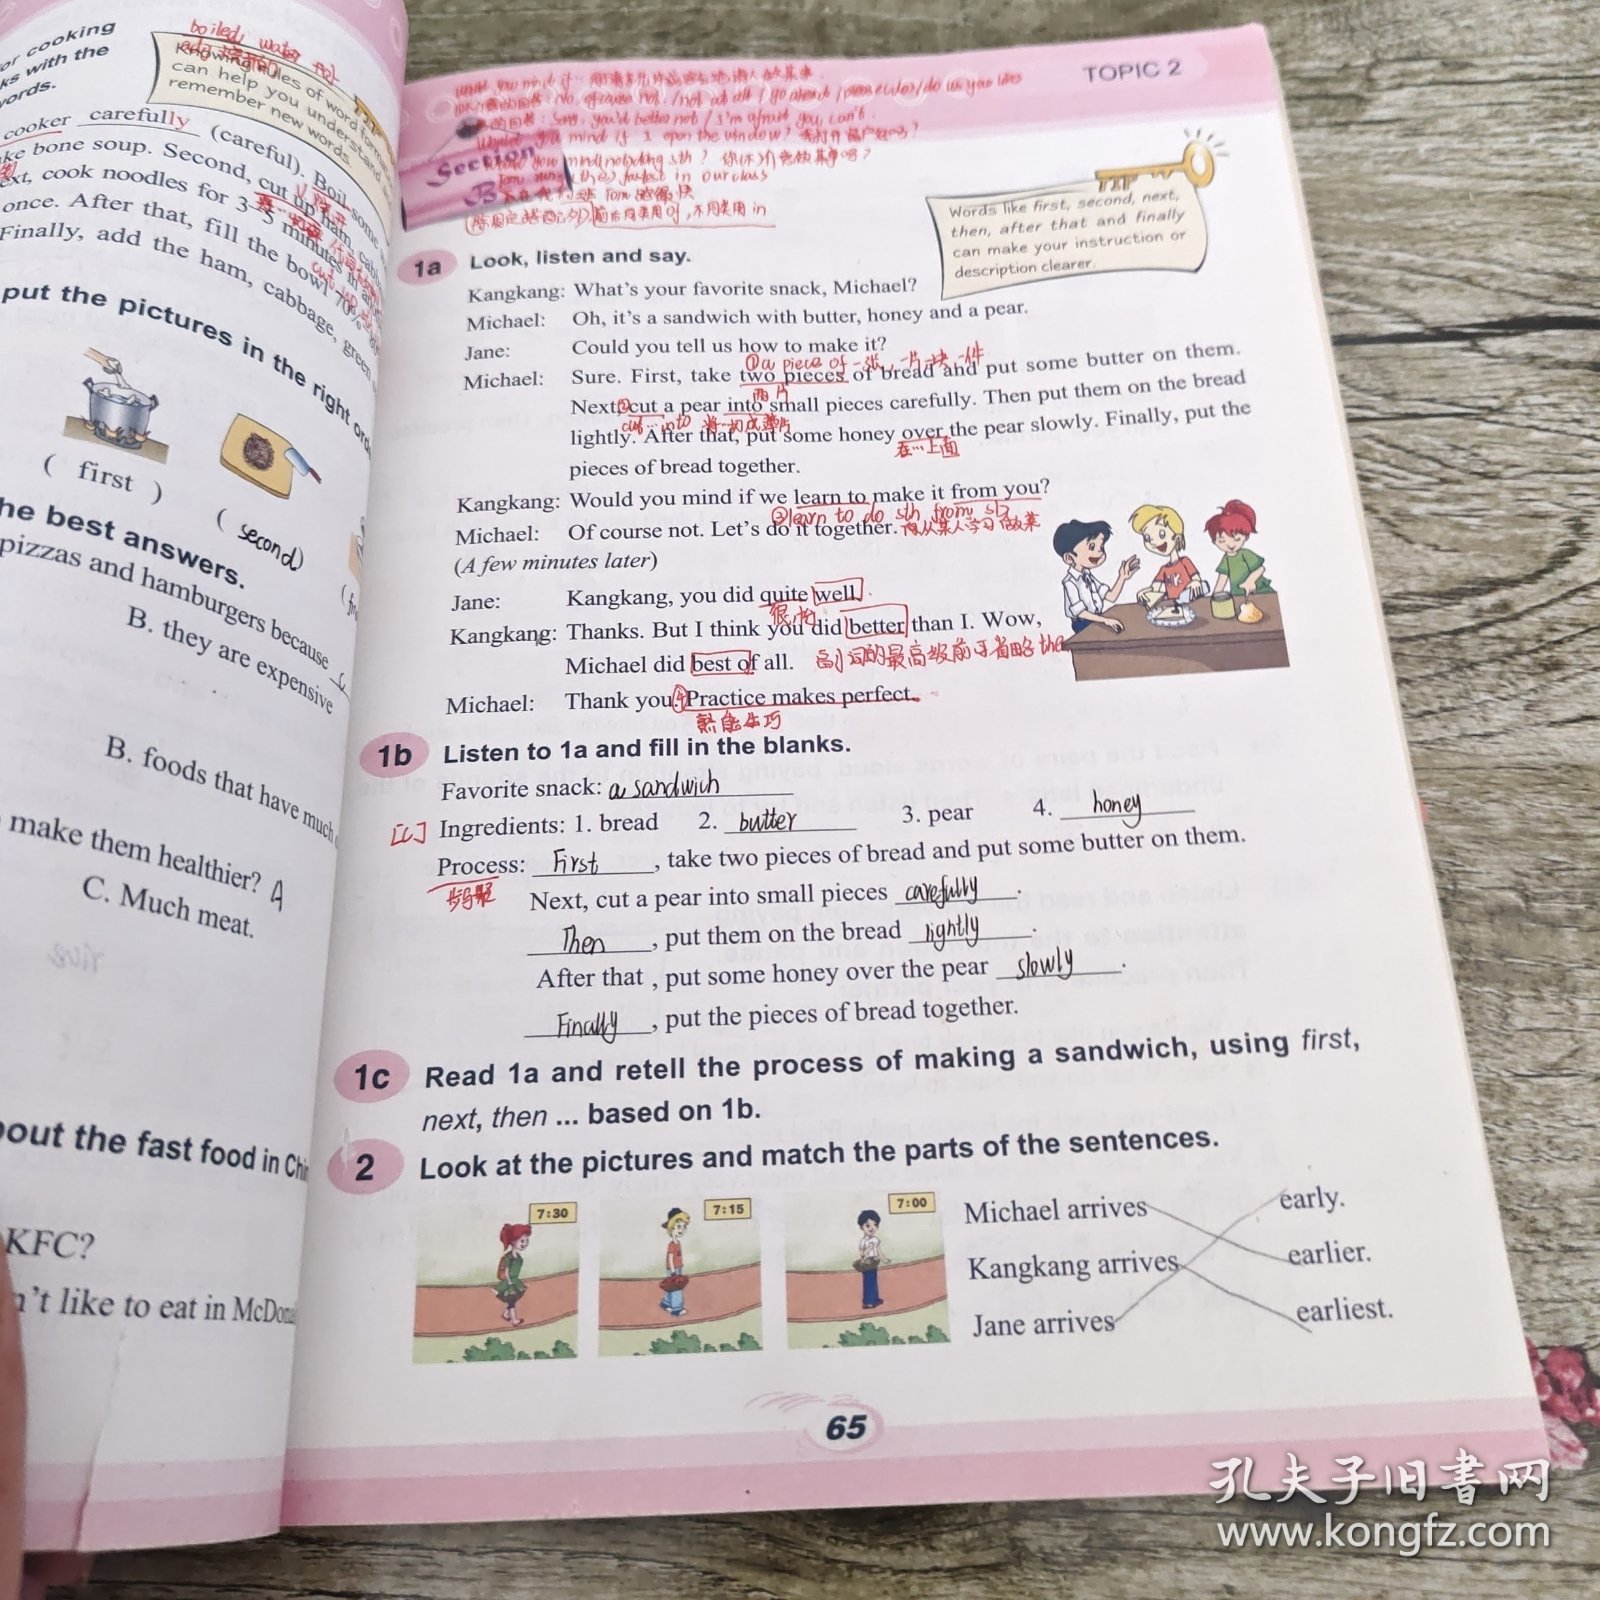 or cooking
ks with the
words.
boiled water
Knowing rules of word formation
can help you understand and
remember new words.
cooker carefully (careful). Boil some
ke bone soup. Second, cut up ham, cabb
ext, cook noodles for 3–5 minutes in
once. After that, fill the bowl 70%
Finally, add the ham, cabbage, green
put the pictures in the right
( first )
( second )
he best answers.
pizzas and hamburgers because
B. they are expensive
B. foods that have much
make them healthier? A
C. Much meat.
bout the fast food in Chi
KFC?
n't like to eat in McDona
TOPIC 2
mind if I open the window?
Section
B
Words like first, second, next,
then, after that and finally
can make your instruction or
description clearer.
1a Look, listen and say.
Kangkang: What's your favorite snack, Michael?
Michael: Oh, it's a sandwich with butter, honey and a pear.
Jane: Could you tell us how to make it?
①a piece of 一张,一片,一块,一件
Michael: Sure. First, take two pieces of bread and put some butter on them.
两片
Next, ②cut a pear into small pieces carefully. Then put them on the bread
cut…into 将…切成薄片
lightly. After that, put some honey over the pear slowly. Finally, put the
在…上面
pieces of bread together.
Kangkang: Would you mind if we learn to make it from you?
③learn to do sth from sb
Michael: Of course not. Let's do it together.
(A few minutes later)
Jane: Kangkang, you did quite well.
Kangkang: Thanks. But I think you did better than I. Wow,
Michael did best of all. 副词的最高级前可省略the
Michael: Thank you. ④Practice makes perfect.
熟能生巧
1b Listen to 1a and fill in the blanks.
Favorite snack: a sandwich
[C] Ingredients: 1. bread 2. butter 3. pear 4. honey
Process: First, take two pieces of bread and put some butter on them.
步骤
Next, cut a pear into small pieces carefully.
Then, put them on the bread lightly.
After that , put some honey over the pear slowly.
Finally, put the pieces of bread together.
1c Read 1a and retell the process of making a sandwich, using first,
next, then ... based on 1b.
2 Look at the pictures and match the parts of the sentences.
7:30
7:15
7:00
Michael arrives early.
Kangkang arrives earlier.
Jane arrives earliest.
65
孔夫子旧书网
www.kongfz.com